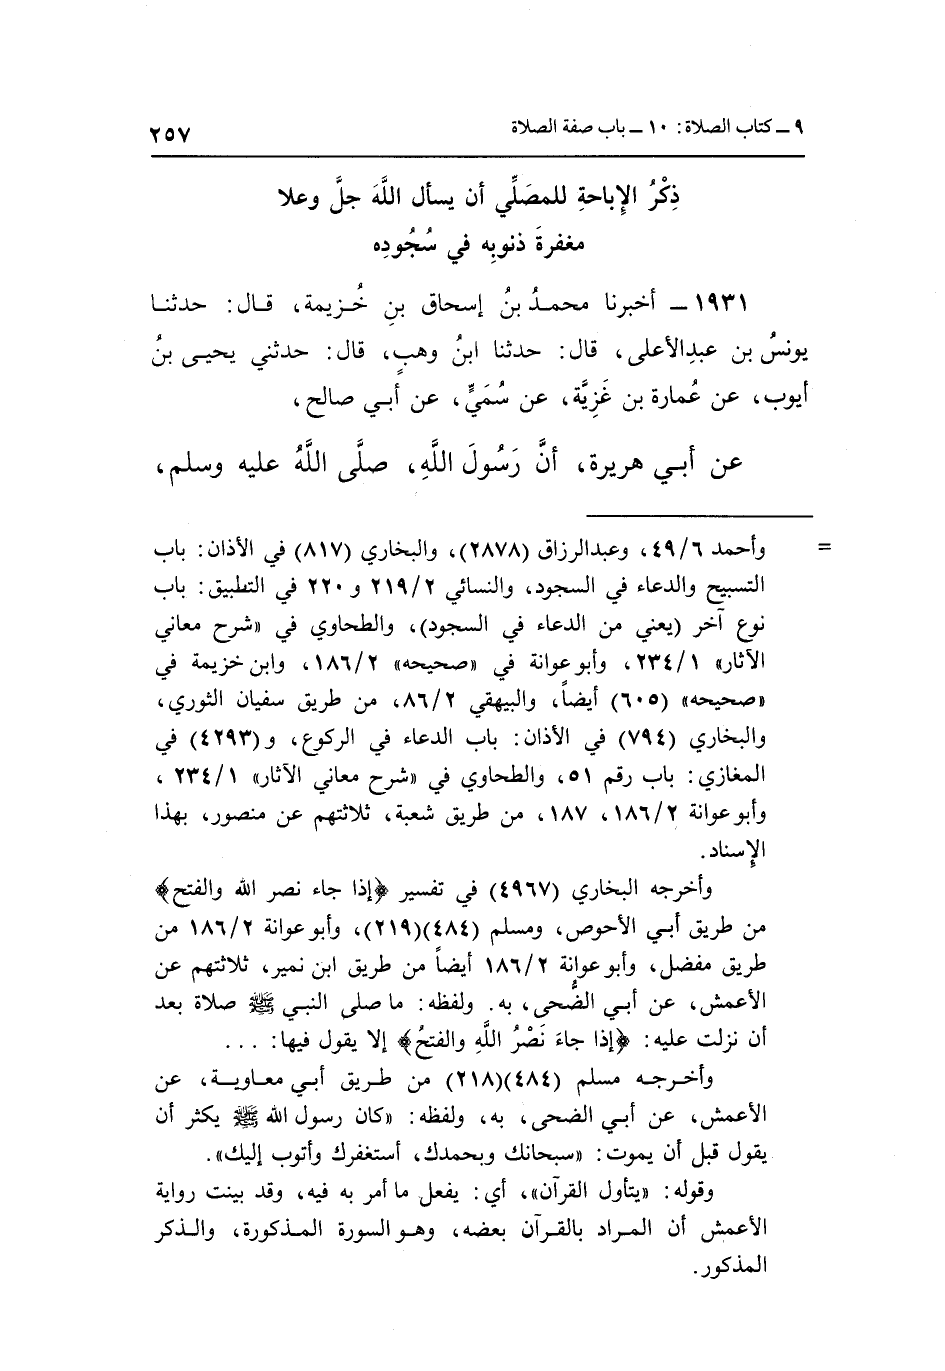 ٩ ـ كتاب الصلاة: ١٠ ـ باب صفة الصلاة ٢٥٧
ذِكْرُ الإِباحةِ للمصَلِّي أن يسأل اللَّهَ جلَّ وعلا
مغفرةَ ذنوبِه في سُجُودِه
١٩٣١ ـ أخبرنا محمدُ بنُ إسحاق بنِ خُزيمة، قال: حدثنا
يونسُ بن عبدِالأعلى، قال: حدثنا ابنُ وهبٍ، قال: حدثني يحيى بنُ
أيوب، عن عُمارة بن غَزِيَّة، عن سُمَيٍّ، عن أبي صالح،
عن أبي هريرة، أنَّ رَسُولَ اللَّهِ، صلَّى اللَّهُ عليه وسلم،
= وأحمد ٤٩/٦، وعبدالرزاق (٢٨٧٨)، والبخاري (٨١٧) في الأذان: باب
التسبيح والدعاء في السجود، والنسائي ٢١٩/٢ و ٢٢٠ في التطبيق: باب
نوع آخر (يعني من الدعاء في السجود)، والطحاوي في «شرح معاني
الآثار» ٢٣٤/١، وأبو عوانة في «صحيحه» ١٨٦/٢، وابن خزيمة في
«صحيحه» (٦٠٥) أيضاً، والبيهقي ٨٦/٢، من طريق سفيان الثوري،
والبخاري (٧٩٤) في الأذان: باب الدعاء في الركوع، و(٤٢٩٣) في
المغازي: باب رقم ٥١، والطحاوي في «شرح معاني الآثار» ٢٣٤/١،
وأبو عوانة ١٨٦/٢، ١٨٧، من طريق شعبة، ثلاثتهم عن منصور، بهذا
الإسناد.
وأخرجه البخاري (٤٩٦٧) في تفسير ﴿إذا جاء نصر الله والفتح﴾
من طريق أبي الأحوص، ومسلم (٤٨٤)(٢١٩)، وأبو عوانة ١٨٦/٢ من
طريق مفضل، وأبو عوانة ١٨٦/٢ أيضاً من طريق ابن نمير، ثلاثتهم عن
الأعمش، عن أبي الضُّحى، به. ولفظه: ما صلى النبي ﷺ صلاة بعد
أن نزلت عليه: ﴿إذا جاءَ نَصْرُ اللَّهِ والفتحُ﴾ إلا يقول فيها: ...
وأخرجه مسلم (٤٨٤)(٢١٨) من طريق أبي معاوية، عن
الأعمش، عن أبي الضحى، به، ولفظه: «كان رسول الله ﷺ يكثر أن
يقول قبل أن يموت: «سبحانك وبحمدك، أستغفرك وأتوب إليك».
وقوله: «يتأول القرآن»، أي: يفعل ما أمر به فيه، وقد بينت رواية
الأعمش أن المراد بالقرآن بعضه، وهو السورة المذكورة، والذكر
المذكور.